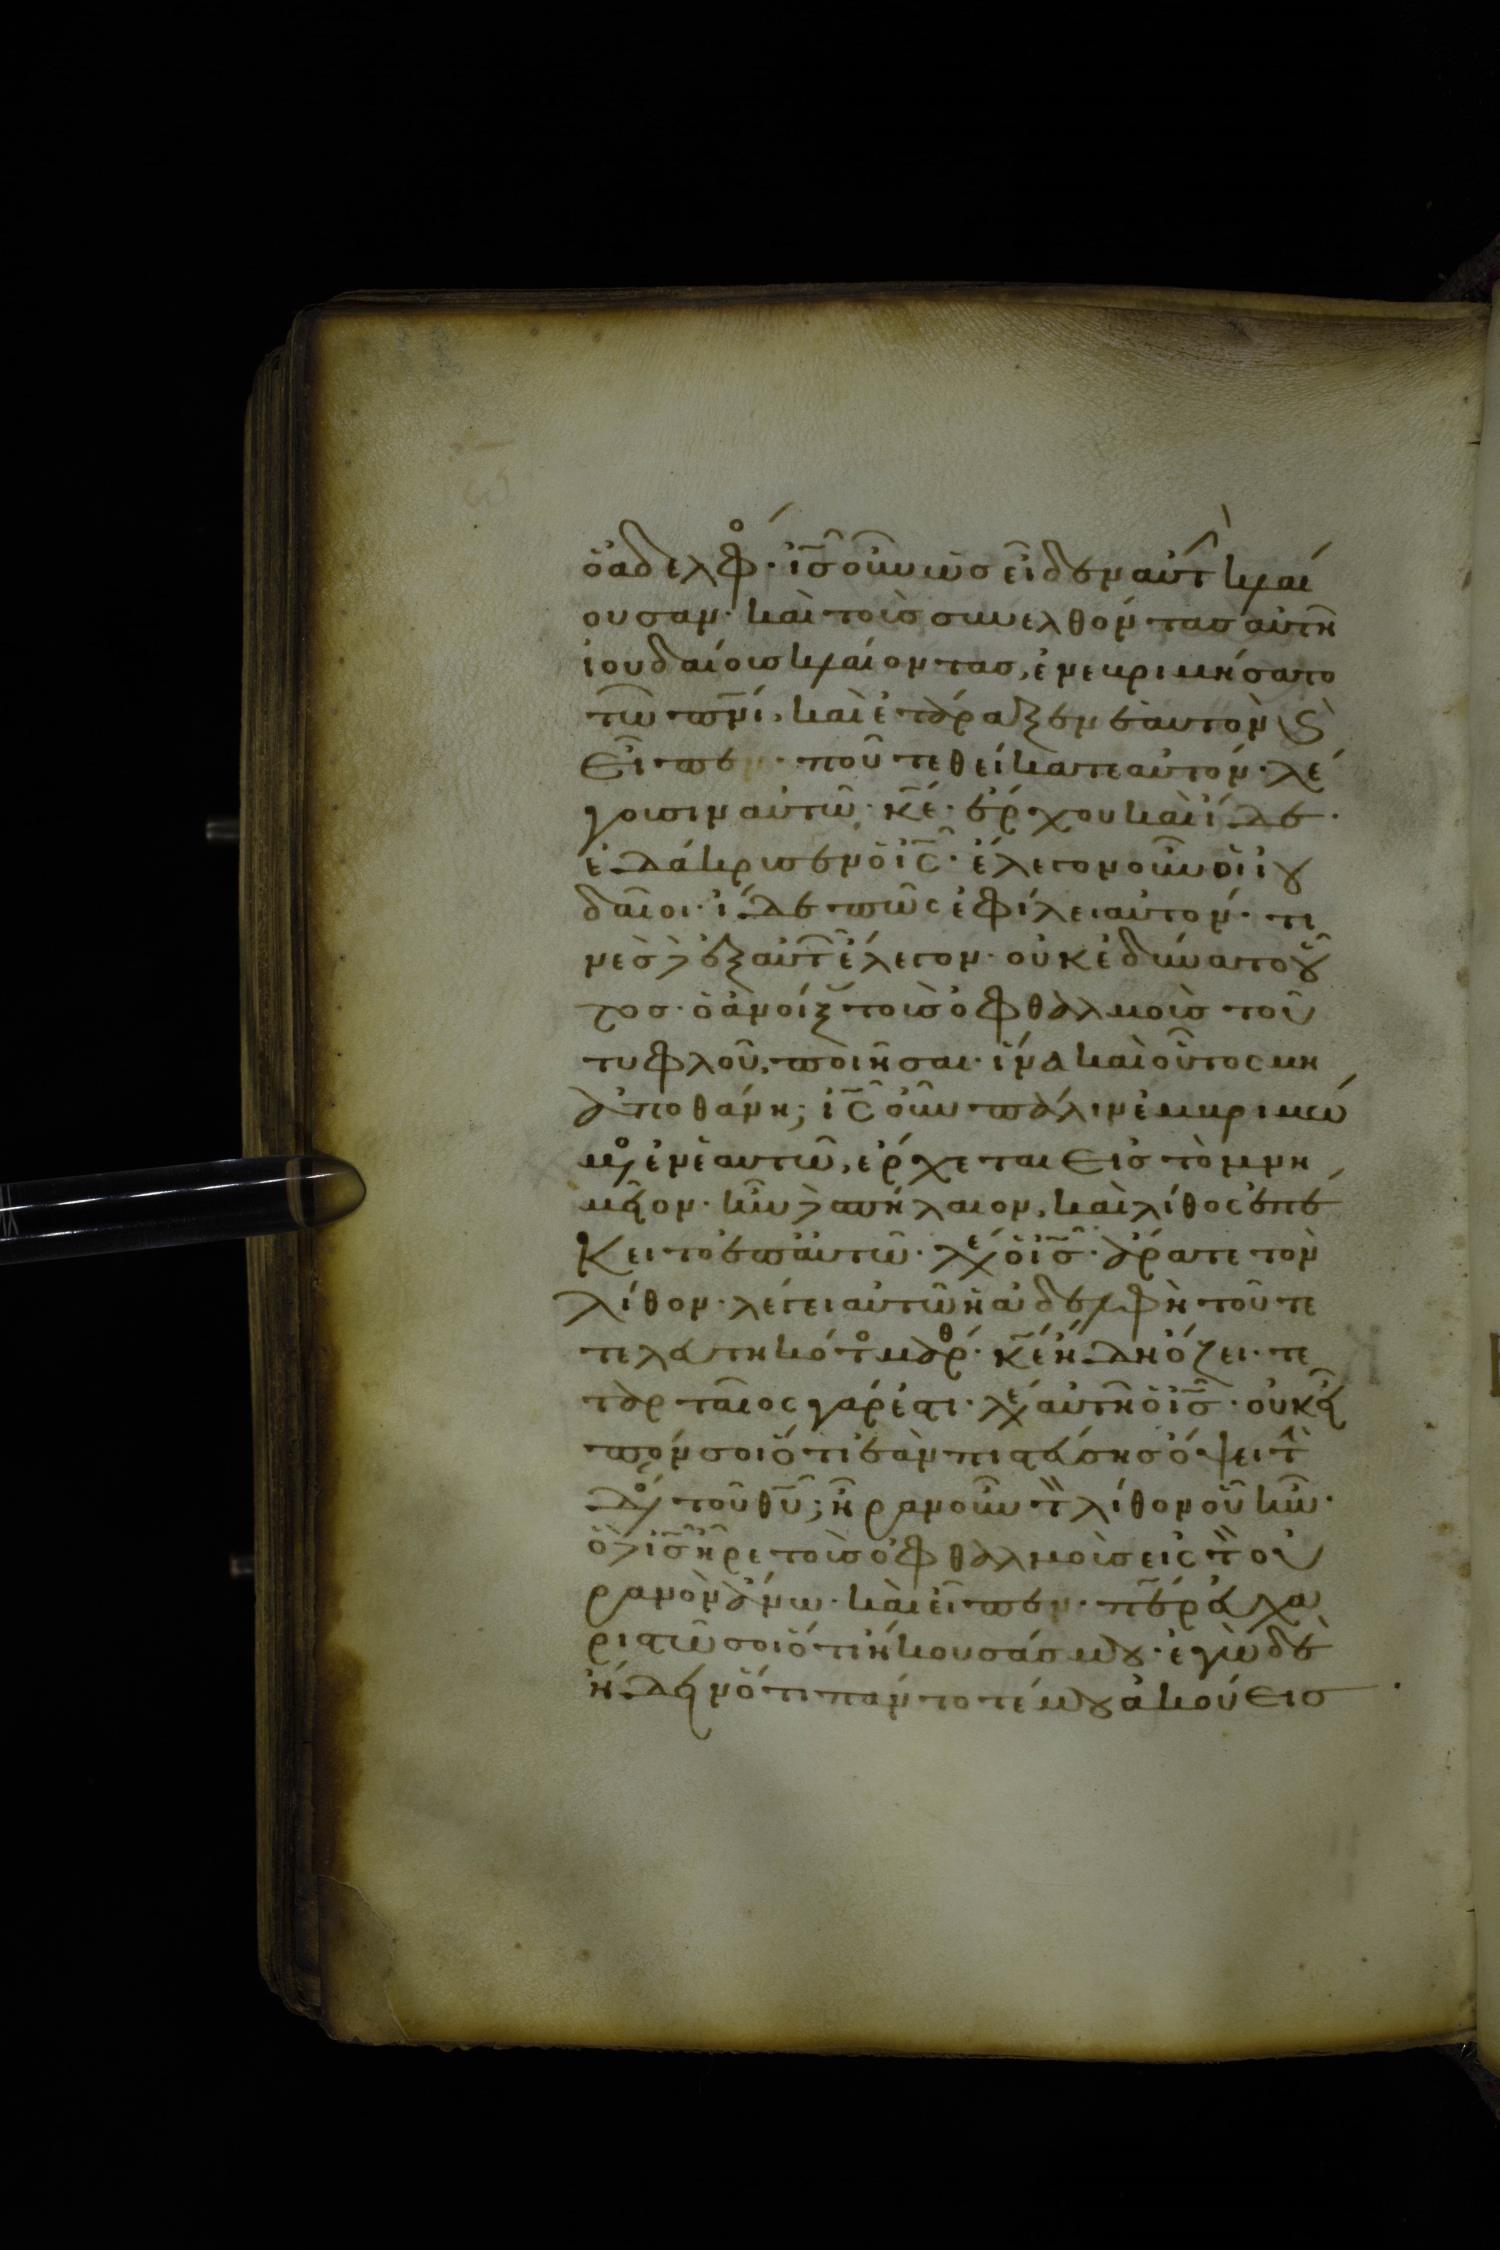 ὁ ἀδελφο · ἰς οὖν ὡς εἶδεν αὐτ κλαί
ουσαν · καὶ τοὺς συνελθόντας αὐτῆ
ἰουδαίους κλαίοντας, ἐνεβριμήσατο
τῶ πνι, καὶ ἐτάραξεν ἑαυτὸν ϛ
εἶπεν · ποῦ τεθείκατε αὐτόν · λέ
γουσιν αὐτῶ · κε · ἔρχου καὶ ἴδε ·
ἐδάκρυσεν ὁ ις · ἔλεγον οὖν οἱ ἰου
δαῖοι · ἴδε πῶς ἐφίλει αὐτόν · τι
νὲς δὲ ἐξ αὐτ ἔλεγον · οὐκ ἐδύνατο οὗ
τος · ὁ ἀνοίξ τοὺς ὀφθαλμοὺς τοῦ
τυφλοῦ, ποιῆσαι · ἵνα καὶ οὗτος μὴ
ἀποθάνη; ις οὖν πάλιν ἐμβριμώ
μενο ἐν ἑαυτῶ, ἔρχεται εἰς τὸ μνη
μεῖον · ἦν δὲ σπήλαιον, καὶ λίθος ἐπέ
κειτο ἐπ αὐτῶ · λέγει ὁ ις · ἄρατε τὸν
λίθον · λέγει αὐτῶ ἡ ἀδελφὴ τοῦ τε
τελευτηκότο μάρθ · κε ἤδη ὄζει · τε
ταρταῖος γάρ ἐστι · λέγει αὐτῆ ὁ ις · οὐκ εἶ
πόν σοι ὅτι ἐὰν πιστεύσης ὄψει τὴ
δόξ τοῦ θυ; ἦραν οὖν τὸν λίθον οὗ ἦν ·
ὁ δὲ ις ἦρε τοὺς ὀφθαλμοὺς εἰς τὸν οὐ
ρανὸν ἄνω · καὶ εἶπεν · περ εὐχα
ριστῶ σοι ὅτι ἤκουσάς μου · ἐγὼ δὲ
ἤδειν ὅτι πάντοτέ μου ἀκούεις